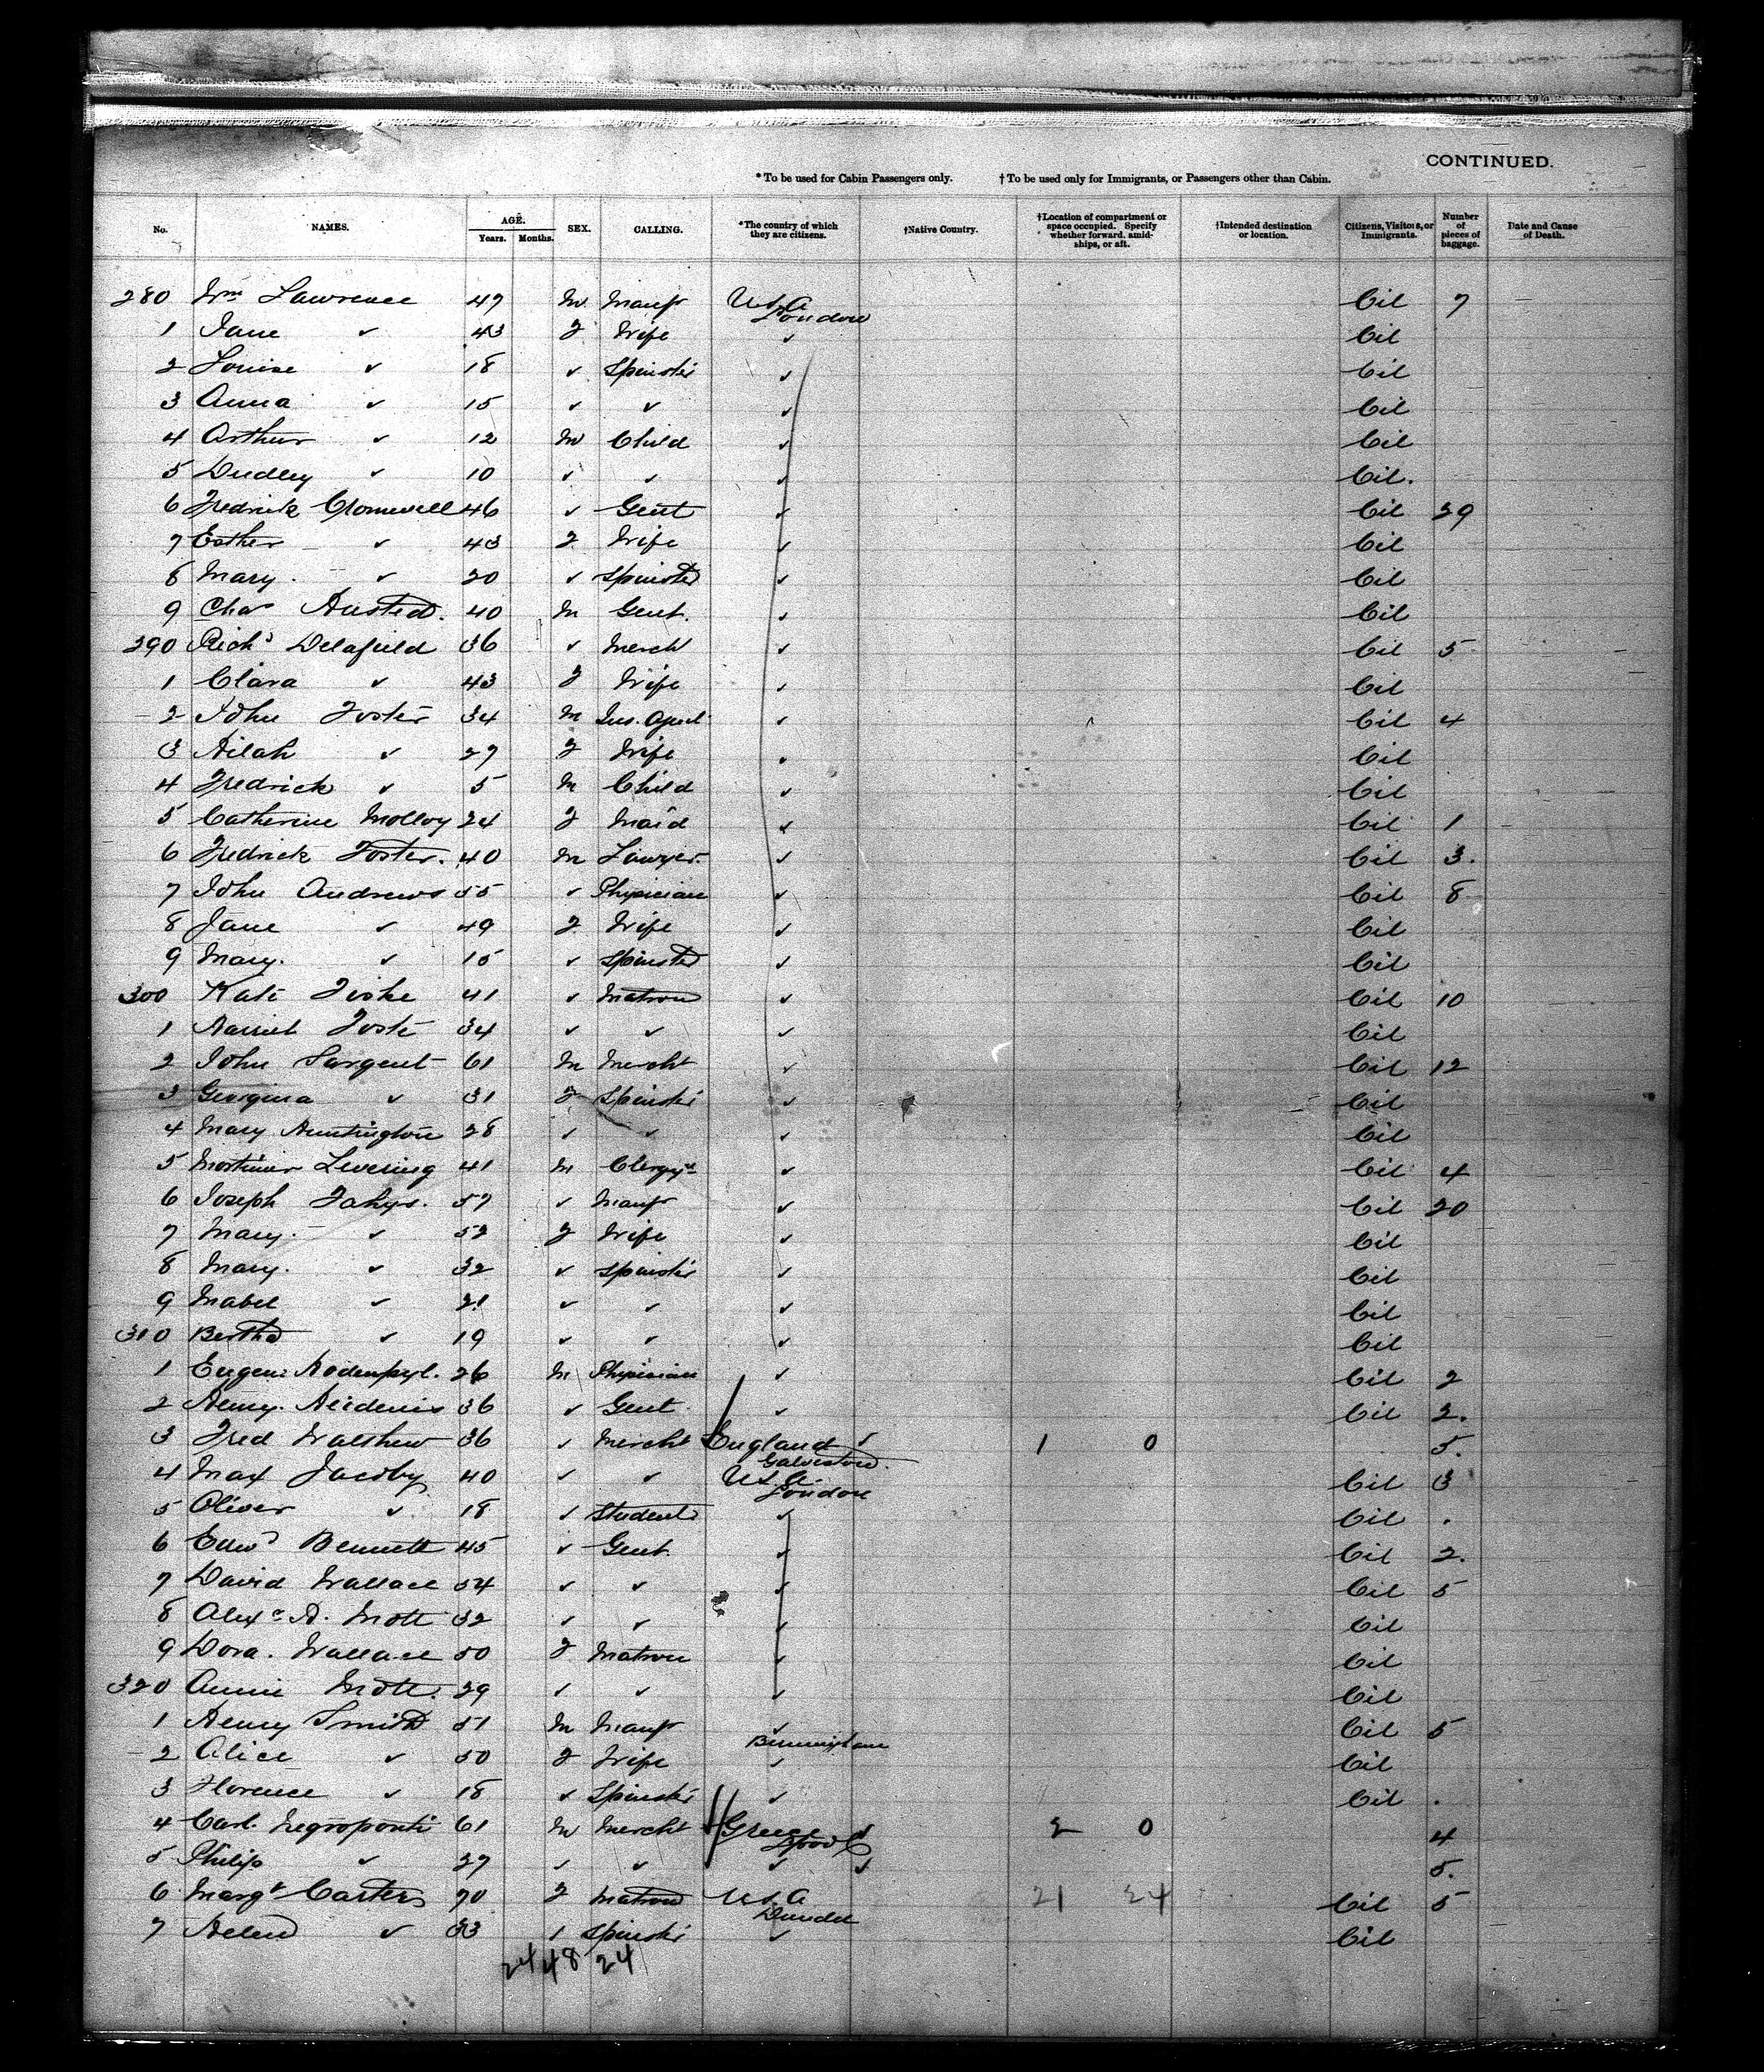 CONTINUED.
* To be used for Cabin Passengers only. † To be used only for Immigrants, or Passengers other than Cabin.
No. NAMES. AGE. Years. Months. SEX. CALLING. *The country of which they are citizens. †Native Country. †Location of compartment or space occupied. Specify whether forward, amidships, or aft. †Intended destination or location. Citizens, Visitors, or Immigrants. Number of pieces of baggage. Date and Cause of Death.
280 Wm Lawrence 47 M Manfr U.S.A London Cit 7
1 Jane ✓ 43 F Wife ✓ Cit
2 Louise ✓ 18 ✓ Spinster ✓ Cit
3 Anna ✓ 15 ✓ ✓ ✓ Cit
4 Arthur ✓ 12 M Child ✓ Cit
5 Dudley ✓ 10 ✓ ✓ ✓ Cit.
6 Fredrick Cromwell 46 ✓ Gent ✓ Cit 29
7 Esther ✓ 43 F Wife ✓ Cit
8 Mary ✓ 20 ✓ Spinster ✓ Cit
9 Chas Husted. 40 M Gent. ✓ Cit
290 Richd Delafield 36 ✓ Merch ✓ Cit 5
1 Clara ✓ 43 F Wife ✓ Cit
2 John Foster 34 M Ins. Agent ✓ Cit 4
3 ✓ 27 F Wife ✓ Cit
4 Fredrick ✓ 5 M Child ✓ Cit
5 Catherine Molloy 24 F Maid ✓ Cit 1
6 Fredrick Foster. 40 M Lawyer ✓ Cit 3.
7 John Andrews 55 ✓ Physician ✓ Cit 8
8 Jane ✓ 49 F Wife ✓ Cit
9 Mary. ✓ 15 ✓ Spinster ✓ Cit
300 Kate Fiske 41 ✓ Matron ✓ Cit 10
1 Harriet 34 ✓ ✓ ✓ Cit
2 John Sargent 61 M Mercht ✓ Cit 12
3 Georgina ✓ 31 F Spinster ✓ Cit
4 Mary Huntington 28 ✓ ✓ ✓ Cit
5 Mortimer Levering 41 M Clergyn ✓ Cit 4
6 Joseph Fahys. 57 ✓ Manfr ✓ Cit 20
7 Mary. ✓ 52 F Wife ✓ Cit
8 Mary. ✓ 32 ✓ Spinster ✓ Cit
9 Mabel ✓ 21 ✓ ✓ ✓ Cit
310 Bertha ✓ 19 ✓ ✓ ✓ Cit
1 Eugene Hodenpyl. 26 M Physician ✓ Cit 2
2 Henry 36 ✓ Gent ✓ Cit 2.
3 Fred Walthew 36 ✓ Mercht England ✓ Galveston 1 0 5.
4 Max Jacoby 40 ✓ ✓ U.S.A. London Cit 3
5 Oliver ✓ 18 ✓ Student ✓ Cit .
6 Edwd Bennett 45 ✓ Gent. ✓ Cit 2.
7 David Wallace 54 ✓ ✓ ✓ Cit 5
8 Alexr H. Mott 32 ✓ ✓ ✓ Cit
9 Dora. Wallace 50 F Matron ✓ Cit
320 Annie Mott. 29 ✓ ✓ ✓ Cit
1 Henry Smith 51 M Manfr ✓ Birmingham Cit 5
2 Alice ✓ 50 F Wife ✓ Cit
3 Florence ✓ 18 ✓ Spinster ✓ Cit .
4 Carl. Negroponti 61 M Mercht Greece ✓ Lpool 2 0 4
5 Philip ✓ 27 ✓ ✓ ✓ ✓ 5.
6 Margt Carter 70 F Matron U.S.A Dundee 21 24 Cit 5
7 Helen ✓ 33 ✓ Spinster ✓ Cit
24 48 24